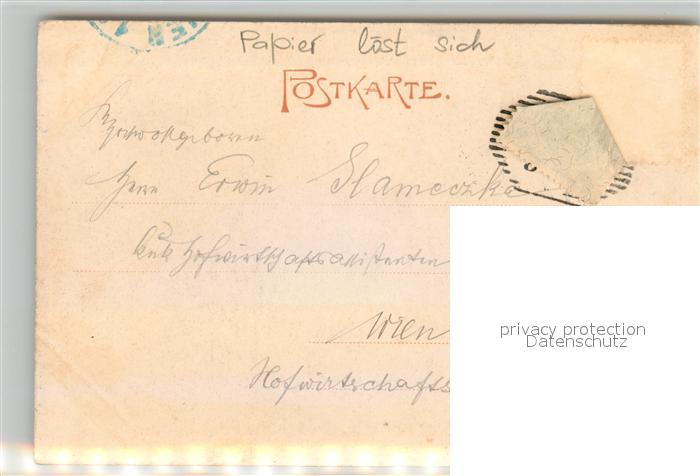 Papier löst sich
POSTKARTE.
Hochwohlgeboren
Herrn Erwin Slameczka
k.u.k. Hofwirtschaftsassistenten
Wien
Hofwirtschafts
privacy protection
Datenschutz